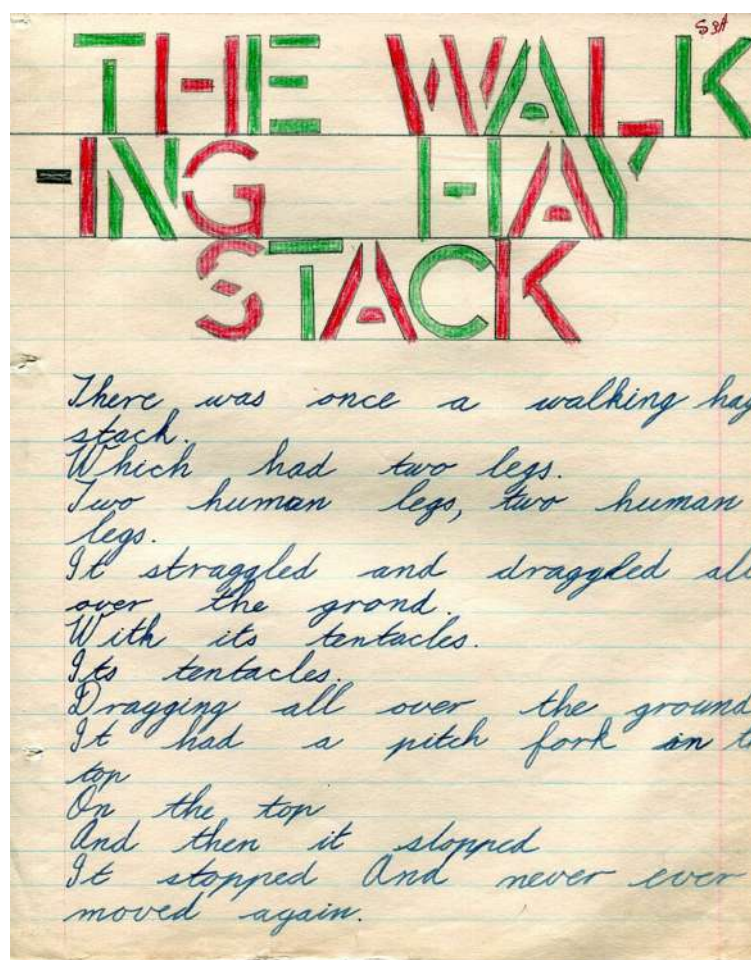 S3A
THE WALK
-ING HAY
STACK
There was once a walking hay
stack.
Which had two legs.
Two human legs, two human
legs.
It straggled and draggled all
over the grond.
With its tentacles.
Its tentacles.
Dragging all over the ground
It had a pitch fork in
top
On the top
And then it stopped
It stopped And never ever
moved again.